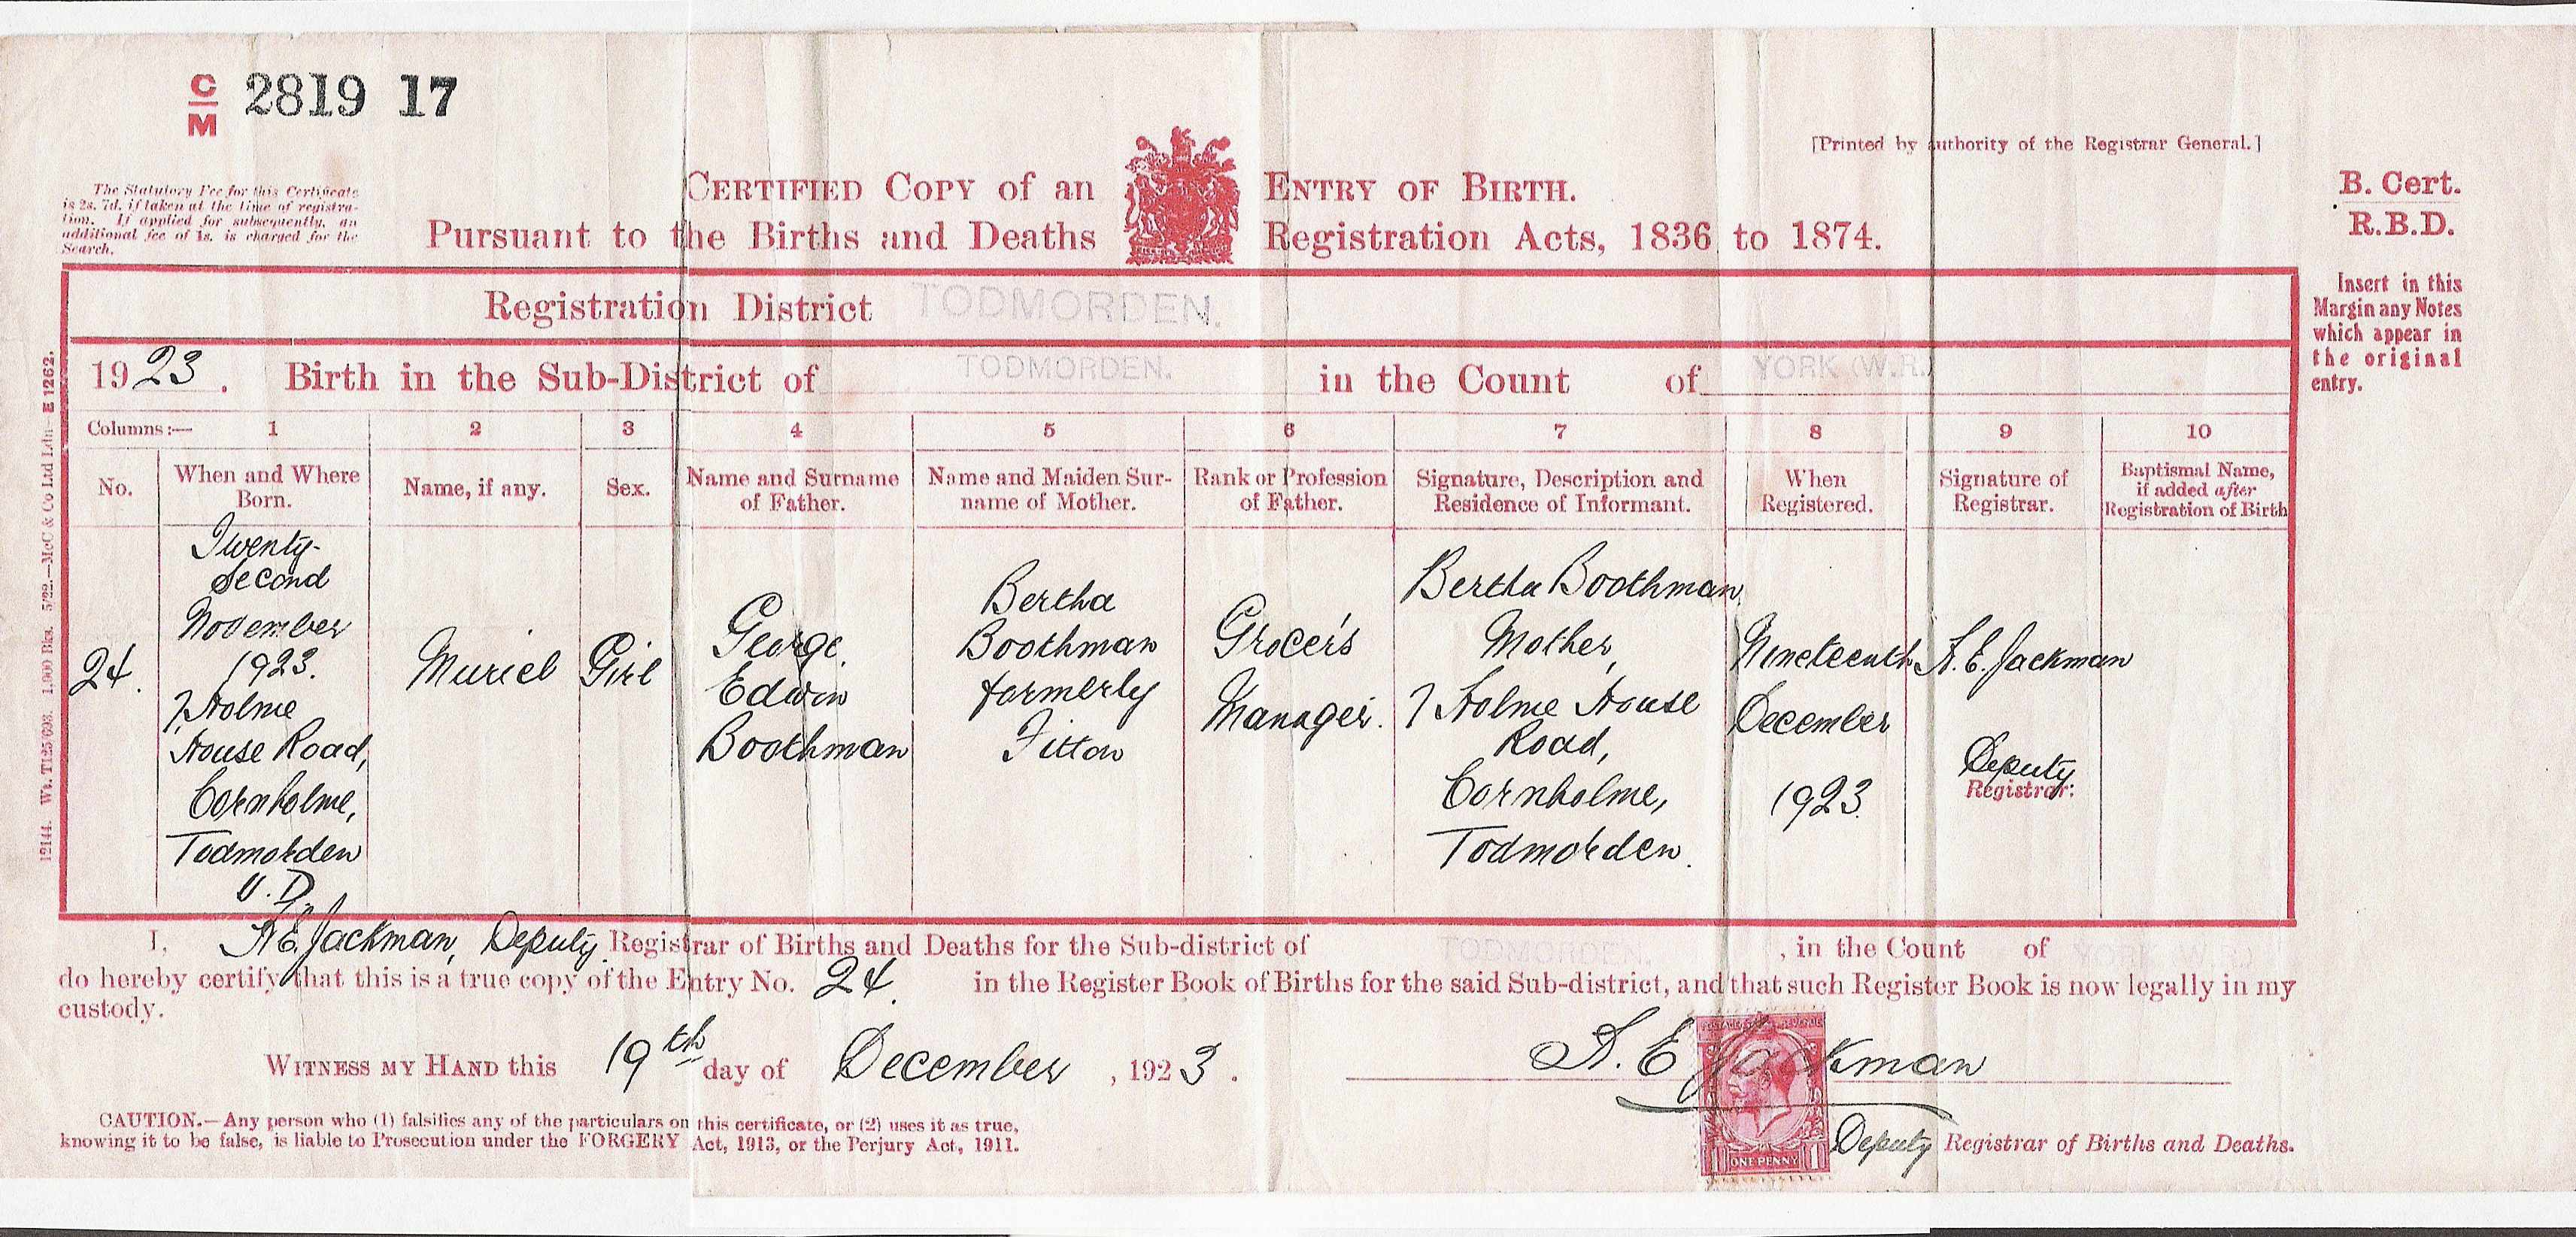 C
M 2819 17
[Printed by authority of the Registrar General.]
The Statutory Fee for this Certificate
is 2s. 7d. if taken at the time of registra-
tion. If applied for subsequently, an
additional fee of 1s. is charged for the
Search.
CERTIFIED COPY of an ENTRY OF BIRTH.
Pursuant to the Births and Deaths Registration Acts, 1836 to 1874.
B. Cert.
R.B.D.
Insert in this
Margin any Notes
which appear in
the original
entry.
Registration District TODMORDEN.
1923. Birth in the Sub-District of TODMORDEN. in the Count of YORK (W.R.)
Columns:— 1 2 3 4 5 6 7 8 9 10
No.
When and Where
Born.
Name, if any.
Sex.
Name and Surname
of Father.
Name and Maiden Sur-
name of Mother.
Rank or Profession
of Father.
Signature, Description and
Residence of Informant.
When
Registered.
Signature of
Registrar.
Baptismal Name,
if added after
Registration of Birth
24.
Twenty-
Second
November
1923.
7 Holme
House Road,
Cornholme,
Todmorden
U.D.
Muriel
Girl
George
Edwin
Boothman
Bertha
Boothman
formerly
Fitton
Grocer's
Manager.
Bertha Boothman
Mother,
7 Holme House
Road,
Cornholme,
Todmorden.
Nineteenth
December
1923.
A. E. Jackman
Deputy
Registrar.
12144. Wt. T125/603. 1,000 Bks. 5/22.—McC & Co Ltd Ldn— E 1262.
I, A. E. Jackman, Deputy Registrar of Births and Deaths for the Sub-district of TODMORDEN. , in the Count of
do hereby certify that this is a true copy of the Entry No. 24. in the Register Book of Births for the said Sub-district, and that such Register Book is now legally in my
custody.
WITNESS MY HAND this 19th day of December , 1923.
A. E. Jackman
CAUTION.—Any person who (1) falsifies any of the particulars on this certificate, or (2) uses it as true,
knowing it to be false, is liable to Prosecution under the FORGERY Act, 1913, or the Perjury Act, 1911.
1 ONE PENNY 1
Deputy Registrar of Births and Deaths.